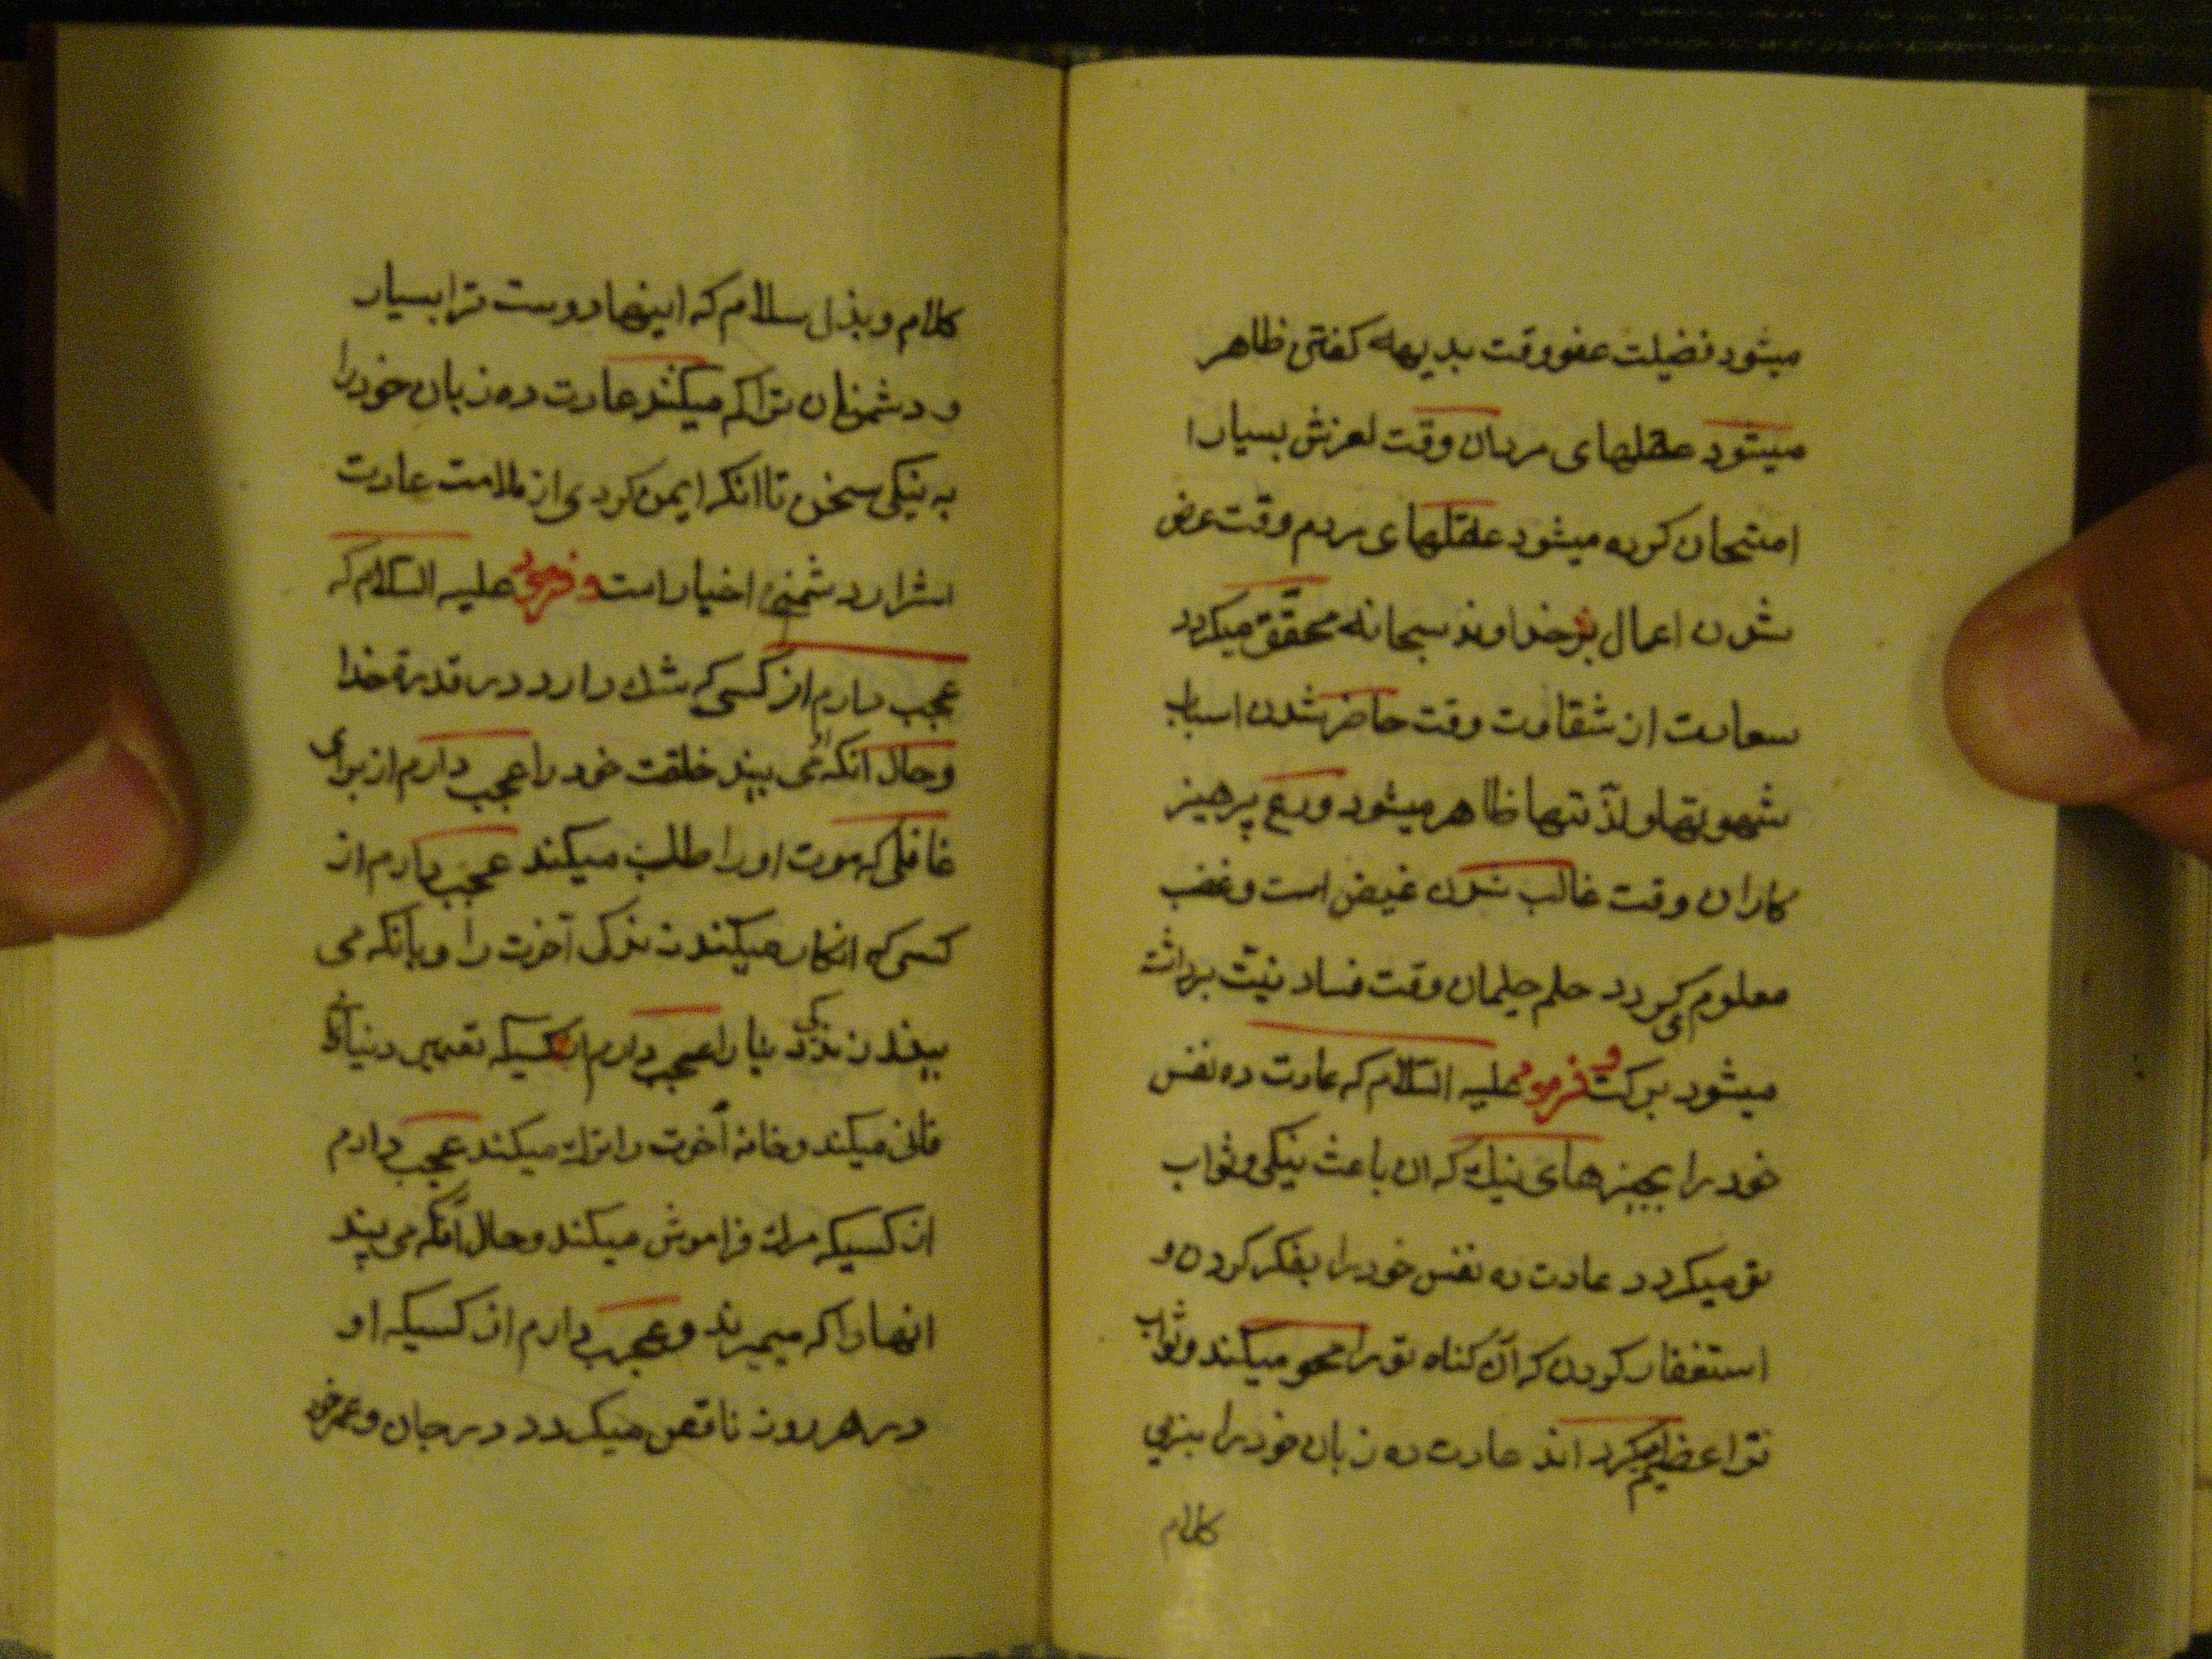 میشود فضیلت عفو وقت بدیهه کفتن ظاهر
میشود عقلهای مردان وقت لغزش بسیار ا
امتحان کرده میشود عقلهای مردم وقت عرض
شدن اعمال بر خداوند سبحانه محقّق میکردد
سعادت از شقاوت وقت حاضر شدن اسباب
شهوتها و لذّتها ظاهر میشود ورع پرهیز
کاران وقت غالب شدن غیض است و غضب
معلوم میکردد حلم حلیمان وقت فساد نیّت برداشته
میشود برکت و فرمود علیه السّلام که عادت ده نفس
خود را بچیزهای نیک که ان باعث نیکی و ثواب
تو میکردد عادت ده نفس خود را بفکر کردن و
استغفار کردن که آن کناه تو را محو میکند و ثواب
ترا عظیم میکرداند عادت ده زبان خود را بنرمی
کلام
کلام و بذل سلام که اینها دوست ترا بسیار
و دشمنان ترا کم میکند عادت ده زبان خود را
به نیکی سخن تا انکه ایمن کردی از ملامت عادت
اشرار دشمنی اخیار است و فرمود علیه السّلام که
عجب دارم از کسی که شک دارد در قدرة خدا
و حال آنکه می بیند خلقت خود را عجب دارم از برای
غافلی که موت او را طلب میکند عجب دارم از
کسی که انکار میکند زندکی آخرت را و بآنکه می
بیند زندکی دنیا را عجب دارم از کسیکه تعمیر دنیای
فانی میکند و خانه آخرت را ترک میکند عجب دارم
از کسیکه مرک فراموش میکند و حال آنکه می بیند
انها را که میمیرند و عجب دارم از کسیکه او
در هر روز ناقص میکردد در جان و عمر خود